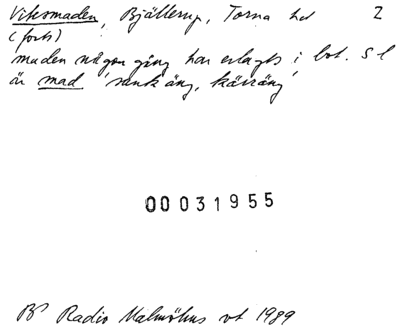 Viksmaden, Bjällerup, Torna hd 2
(forts)
maden någon gång har erlagts i bot. S l
är mad 'sank äng, kärräng'
00031955
BP Radio Malmöhus vt 1989